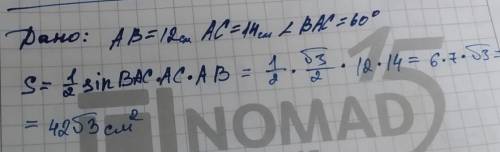 Дано: AB=12см AC=14см ∠BAC=60°
S= 1/2 sin BAC·AC·AB = 1/2 · √3/2 · 12·14 = 6·7·√3 =
= 42√3 см²
15
NOMAD